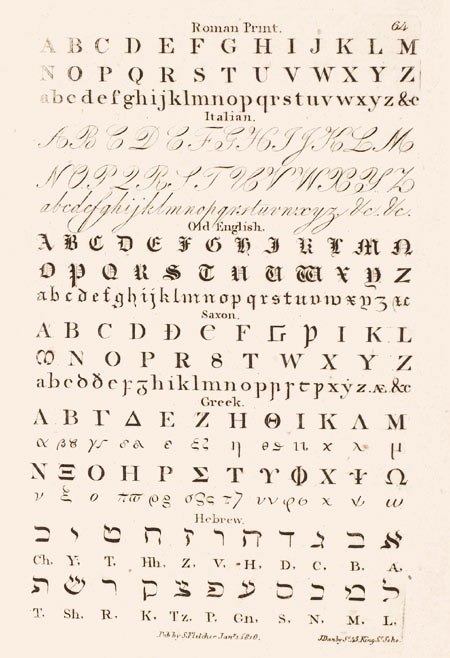 Roman Print. 64
A B C D E F G H I J K L M
N O P Q R S T U V W X Y Z
a b c d e f g h i j k l m n o p q r s t u v w x y z &c
Italian.
A B C D E F G H I J K L M
N O P Q R S T U V W X Y Z
a b c d e f g h i j k l m n o p q r s t u v w x y z &c. &c.
Old English.
A B C D E F G H I K L M N
O P Q R S T U W X Y Z
a b c d e f g h i j k l m n o p q r s t u v w x y z &c
Saxon.
A B C D Ð E F Ᵹ Þ I K L
M N O P R S T W X Y Z
a b c d ð e f g h i k l m n o p r s t p x y z. æ. &c
Greek.
Α Β Γ Δ Ε Ζ Η Θ Ι Κ Λ Μ
α βϐ γ δ ε ζ η θϑ ι κ λ μ
Ν Ξ Ο Π Ρ Σ Τ Υ Φ Χ Ψ Ω
ν ξ ο πϖ ρϱ σς τ υ φ χ ψ ω
Hebrew.
א ב ג ד ה ו ז ח ט י כ
Ch. Y. T. Hh. Z. V. H. D. C. B. A.
ל מ נ ס ע פ צ ק ר ש ת
T. Sh. R. K. Tz. P. Gn. S. N. M. L.
Pub by S. Fletcher Jan. 1. 1810. J Danby Sc. 45 King St. Soho.